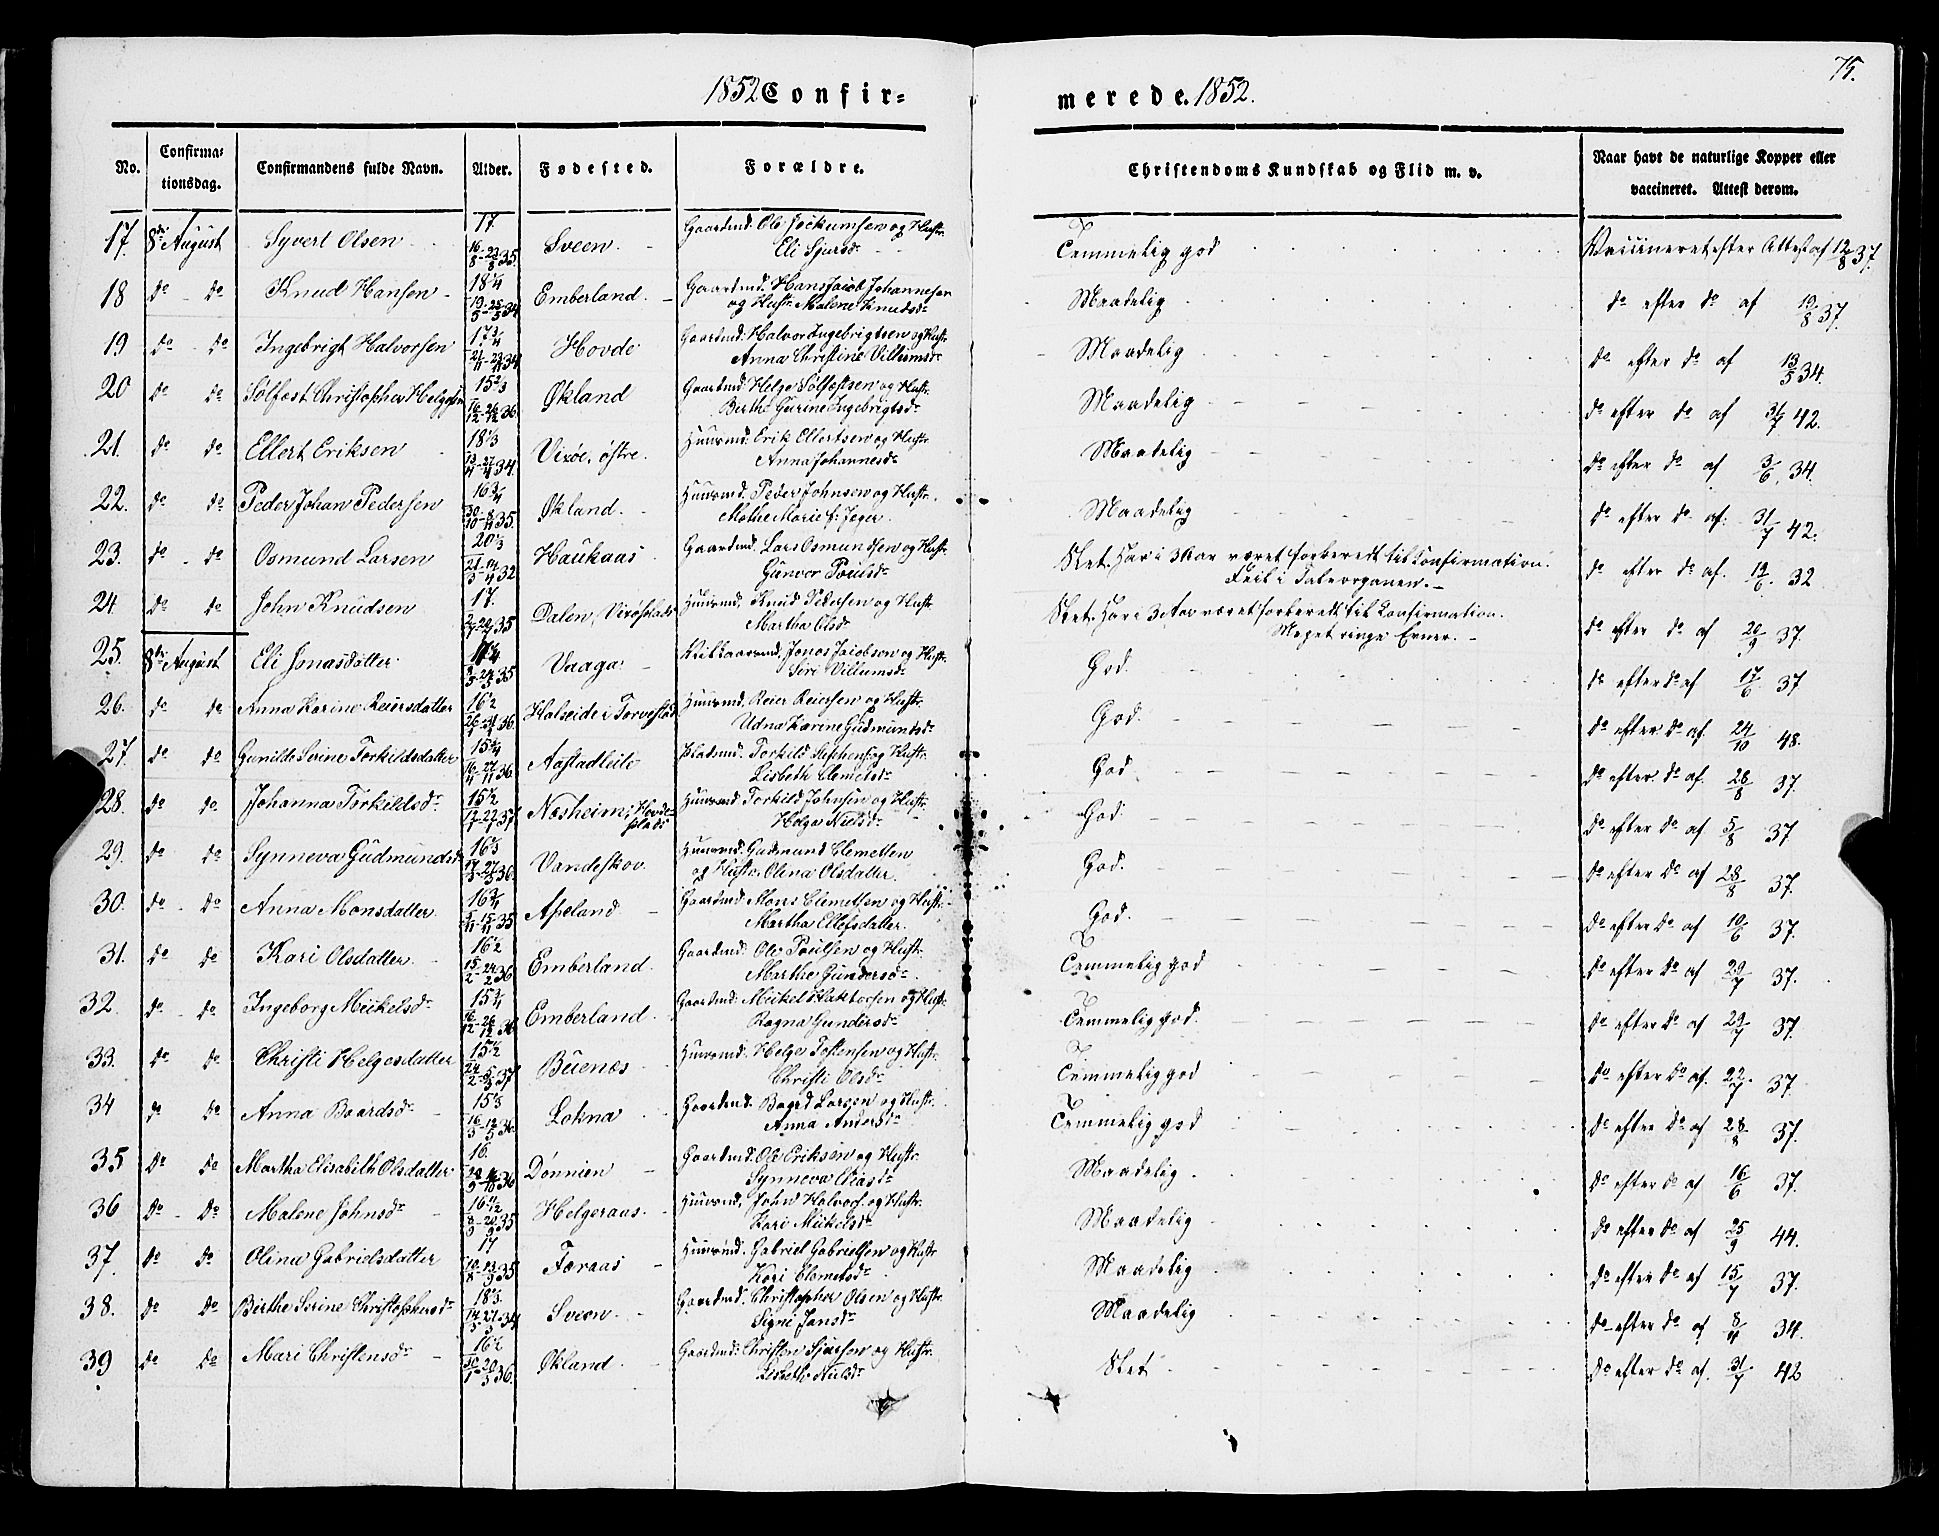 75.
1852 Confir= merede. 1852.
No. Confirma= tionsdag. Confirmandens fulde Navn. Alder. Fødested. Forældre. Christendoms Kundskab og Flid m. v. Naar havt de naturlige Kopper eller vaccineret. Attest derom.
17. 8de August Syvert Olsen 17 16/8-23/8 35. Sveen. Gaardmd. Ole Jockumsen og Hustr. Eli Sjursdr Temmelig god Vaccineret efter Attest af 12/8 37.
18 do do Knud Hansen 18¼ 19/5-25/5 34 Emberland. Gaardmd. Hans Jacob Johannesen og Hustr. Malene Knudsdr Maadelig do efter do af 19/8 37.
19 do do Ingebrigt Halvorsen 17¾ 34 Hovde Gaardmd. Halvor Ingebrigtsen og Hustr. Anna Christine Villumsdr Maadelig do efter do af 13/5 34.
20 do do Solfæst Christopher Helgesen 15⅔ 16/12-26/12 36 Økland Gaardmd. Helge Solfestsen og Hustr. Berthe Gurine Ingebrigtsdr Maadelig do efter do af 31/7 42.
21. do do Ellert Eriksen 18⅓ 13/4-27/4 34. Vixøe, østre. Huusmd. Erik Ellertsen og Hustr. Anna Johannesdr Maadelig do efter do af 3/6 34.
22. do do Peder Johan Pedersen 16¾ 30/10-8/11 35. Økland. Huusmd. Peder Johnsen og Hustr. Mathe Marie f. Jeger. Maadelig do efter do af 31/7 42.
23. do do Osmund Larsen 20⅓ 21/3-14/4 32 Haukaas Gaardmd. Lars Osmundsen og Hustr. Gunvor Poulsdr Slet. Har i 3 Aar været forberedt til Confirmation. Feil i Taleorganen. do efter do af. 19/6 32
24 do do John Knudsen 17. 35 Dalen, Vixøeplads Huusmd. Knud Pedersen og Hustr. Martha Olsdr Slet. Har i 3 Aar været forberedt til Confirmation. Meget ringe Evner. do efter do af 20/9 37.
25. 8de August Eli Jonasdatter 35 Vaaga Jonas Jacobsen og Hustr. Siri Villumsdr God. do efter do af 17/6 37
26. do do Anna Karine Reiersdatter 16½ 36. Halseide i Torvestad Huusmd. Reier Reiersen og Hustr. Udna Karine Gudmundsdr God. do efter do af. 24/10 48.
27. do do Gunilde Serine Torkildsdatter 15¾ 16/11-27/11 36. Aastadleite Pladsmd. Torkild Stephens. og Hustr. Lisbeth Clemetsdr God do efter do af. 28/8 37.
28. do do Johanna Torkildsdr 15½ 12/1-22/1 37 Næsheim, Hovdeplads Huusmd. Torkild Johnsen og Hustr. Helga Nielsdr God. do efter do af 5/8 37.
29. do do Synneva Gudmundsdr 16⅓ 17/3-27/3 36. Vandeskov. Huusmd. Gudmund Clemetsen og Hustr. Olina Olsdatter. God. do efter do af 28/8 37.
30. do do Anna Monsdatter 16¾ 5/11-15/11 35 Apeland Gaardmd. Mons Clemetsen og Hustr. Martha Ellefsdatter. God. do efter do af 10/6 37.
31. do do Kari Olsdatter. 16½ 15/2-24/2 36 Emberland. Gaardmd. Ole Poulsen og Hustr. Marthe Gundersdr. Temmelig god do efter do af 29/7 37.
32. do do Ingeborg Mikkelsdr 15¾ 16/12-26/12 36 Emberland Gaardmd. Mikkel Haktorsen og Hustr. Ragna Gundersdr Temmelig god. do efter do af 29/7 37.
33. do do Christi Helgesdatter 15½ 24/2-5/3 37 Buenes Huusmd. Helge Tostensen og Hustr. Christi Olsdr Temmelig god do efter do af. 22/7 37.
34 do do Anna Baardsdr 36. Lokna Gaardmd. Baard Larsen og Hustr. Anna Andersdr Temmelig god do efter do af 28/8 37.
35 do do Martha Elisabeth Olsdatter 16. 36 Dønnien Gaardmd. Ole Eriksen og Hustr. Synneva Eliasdr Maadelig do efter do af 16/6 37.
36 do do Malene Johnsdr 8/9-20/9 35 Helgeraas. Huusmd. John Halvors. og Hustr. Kari Mikkelsdr Maadelig do efter do af 25/9 44.
37. do do Olina Gabrielsdatter 17 10/8-13/9 35 Færaas Huusmd. Gabriel Gabrielsen og Hustr. Kari Clemetsdr Maadelig do efter do af 15/7 37.
38. do do Birthe Serine Christophersdr 18⅓ 34 Sveen. Gaardmd. Christopher Olsen og Hustr. Signi Jansdr Maadelig do efter do af 8/4 34.
39 do do Mari Christensdr 16½ 36. Økland. Gaardmd. Christen Sjursen og Hustr. Lisbeth Nilsdr Slet do efter do af. 31/7 42